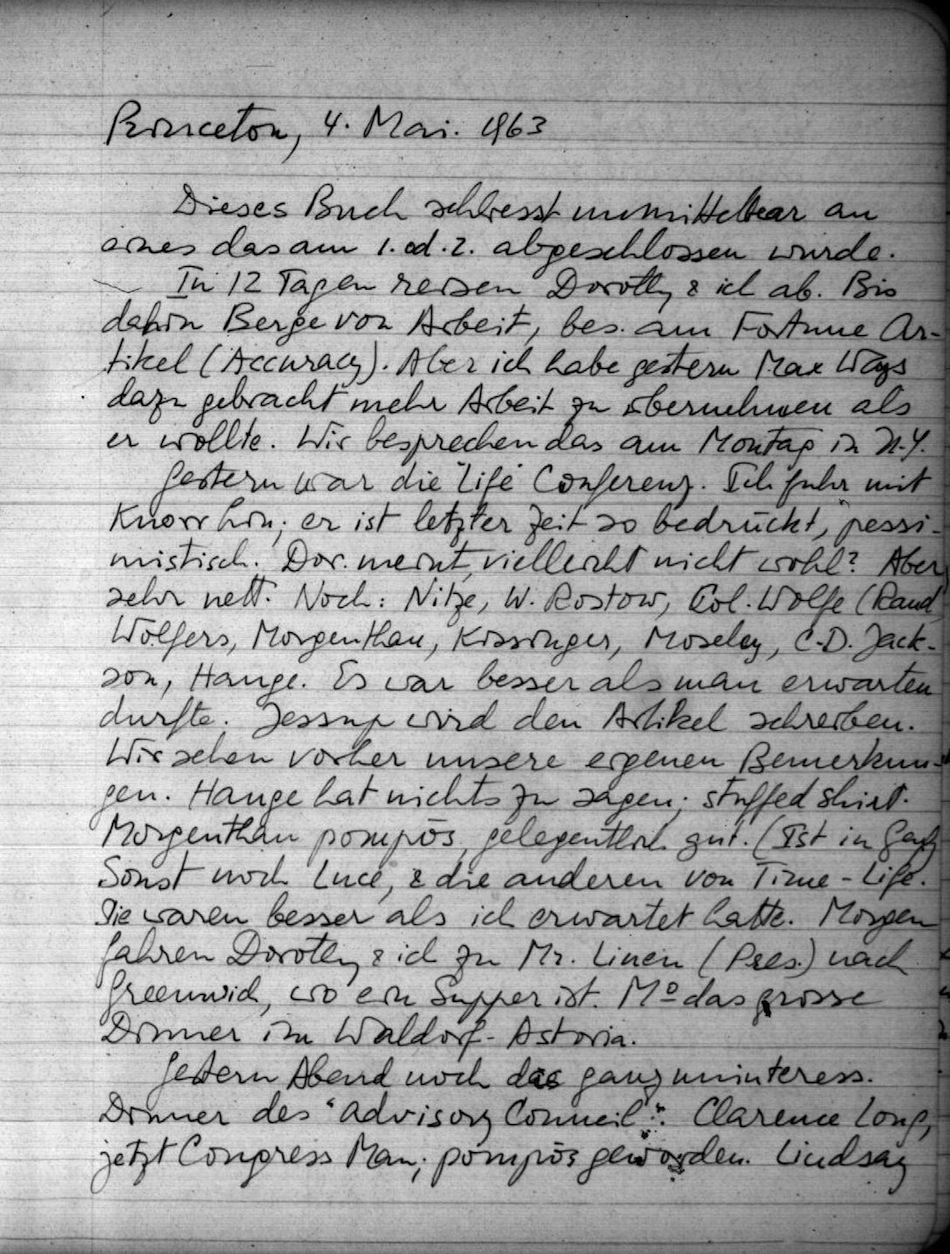 Princeton, 4. Mai. 1963
Dieses Buch schliesst unmittelbar an
eines das am 1. od. 2. abgeschlossen wurde.
In 12 Tagen reisen Dorothy & ich ab. Bis
dahin Berge von Arbeit, bes. am Fortune Ar-
tikel (Accuracy). Aber ich habe gestern Max Ways
dazu gebracht mehr Arbeit zu übernehmen als
er wollte. Wir besprechen das am Montag in N.Y.
Gestern war die "Life" Conferenz. Ich fuhr mit
Knorr hin; er ist letzter Zeit so bedrückt, pessi-
mistisch. Dor. meint, vielleicht nicht wohl? Aber
sehr nett. Noch: Nitze, W. Rostow, Col. Wolfe (Rand,
Wolfers, Morgenthau, Kissinger, Moseley, C.D. Jack-
son, Hauge. Es war besser als man erwarten
durfte. Jessup wird den Artikel schreiben.
Wir sehen vorher unsere eigenen Bemerkun-
gen. Hauge hat nichts zu sagen; stuffed shirt.
Morgenthau pompös, gelegentlich gut. (Ist in
Sonst noch Luce, & die anderen von Time-Life.
Sie waren besser als ich erwartet hatte. Morgen
fahren Dorothy & ich zu Mr. Linen (Pres.) nach
Greenwich, wo ein Supper ist. Mo das grosse
Dinner im Waldorf-Astoria.
Gestern Abend noch das ganz uninteress.
Dinner des "Advisory Council": Clarence Long,
jetzt Congress Man; pompös geworden. Lindsay